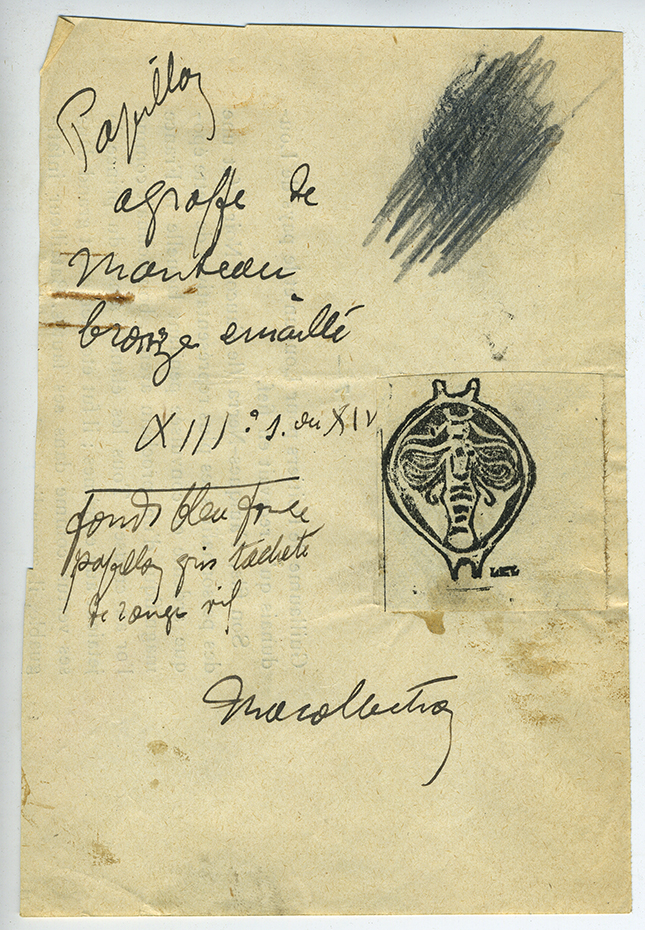 Papillon
agraffe de
manteau
bronze émaillé
XIIIe s. ou XIV
fonds bleu foncé
papillon gris tacheté
de rouge vif
Ma collection